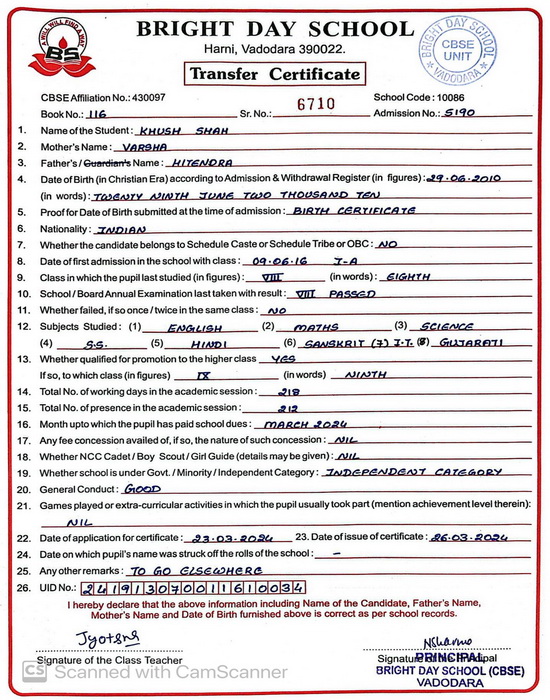 A WILL WILL FIND A WAY
BS
BRIGHT DAY SCHOOL
Harni, Vadodara 390022.
Transfer Certificate
BRIGHT DAY SCHOOL
CBSE
UNIT
VADODARA
CBSE Affiliation No.: 430097 School Code : 10086
Book No.: 116 Sr. No.: 6710 Admission No.: 5190
1. Name of the Student : KHUSH SHAH
2. Mother's Name : VARSHA
3. Father's / Guardian's Name : HITENDRA
4. Date of Birth (in Christian Era) according to Admission & Withdrawal Register (in figures) : 29.06.2010
(in words) : TWENTY NINTH JUNE TWO THOUSAND TEN
5. Proof for Date of Birth submitted at the time of admission : BIRTH CERTIFICATE
6. Nationality : INDIAN
7. Whether the candidate belongs to Schedule Caste or Schedule Tribe or OBC : NO
8. Date of first admission in the school with class : 09.06.16 I-A
9. Class in which the pupil last studied (in figures) : VIII (in words) : EIGHTH
10. School / Board Annual Examination last taken with result : VIII PASSED
11. Whether failed, if so once / twice in the same class : NO
12. Subjects Studied : (1) ENGLISH (2) MATHS (3) SCIENCE
(4) S.S. (5) HINDI (6) SANSKRIT (7) I.T. (8) GUJARATI
13. Whether qualified for promotion to the higher class YES
If so, to which class (in figures) IX (in words) NINTH
14. Total No. of working days in the academic session : 218
15. Total No. of presence in the academic session : 212
16. Month upto which the pupil has paid school dues : MARCH 2024
17. Any fee concession availed of, if so, the nature of such concession : NIL
18. Whether NCC Cadet / Boy Scout / Girl Guide (details may be given) : NIL
19. Whether school is under Govt. / Minority / Independent Category : INDEPENDENT CATEGORY
20. General Conduct : GOOD
21. Games played or extra-curricular activities in which the pupil usually took part (mention achievement level therein):
NIL
22. Date of application for certificate : 23.03.2024 23. Date of issue of certificate : 26.03.2024
24. Date on which pupil's name was struck off the rolls of the school : -
25. Any other remarks : TO GO ELSEWHERE
26. UID No.: 241913070011610034
I hereby declare that the above information including Name of the Candidate, Father's Name,
Mother's Name and Date of Birth furnished above is correct as per school records.
Signature of the Class Teacher Signature of the Principal
PRINCIPAL
BRIGHT DAY SCHOOL (CBSE)
VADODARA
CS Scanned with CamScanner